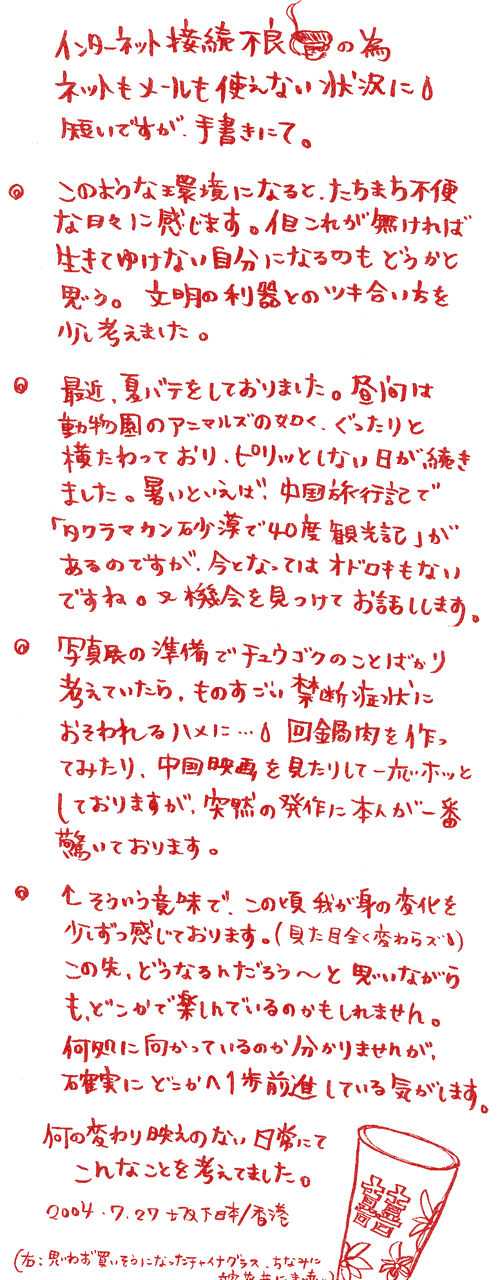 インターネット接続不良の為
ネットもメールも使えない状況に
短いですが、手書きにて。
このような環境になると、たちまち不便
な日々に感じます。但これが無ければ
生きてゆけない自分になるのもどうかと
思う。文明の利器とのツキ合い方を
少し考えました。
最近、夏バテをしておりました。昼間は
動物園のアニマルズの如く、ぐったりと
横たわっており、ピリッとしない日が続き
ました。暑いといえば、中国旅行記で
「タクラマカン砂漠で40度観光記」が
あるのですが、今となってはオドロキもない
ですね。又機会を見つけてお話しします。
写真展の準備でチュウゴクのことばかり
考えていたら、ものすごい禁断症状に
おそわれるハメに…回鍋肉を作っ
てみたり、中国映画を見たりして一応ホッと
しておりますが、突然の発作に本人が一番
驚いております。
↑そういう意味で、この頃我が身の変化を
少しずつ感じております。(見た目全く変わらズ)
この先、どうなるんだろう〜と思いながら
も、どこかで楽しんでいるのかもしれません。
何処に向かっているのか分かりませんが、
確実にどこかへ1歩前進している気がします。
何の変わり映えのない日常にて
こんなことを考えてました。
2004.7.27 坂下日本/香港
囍
(右:思わず買いそうになったチャイナグラス、ちなみに